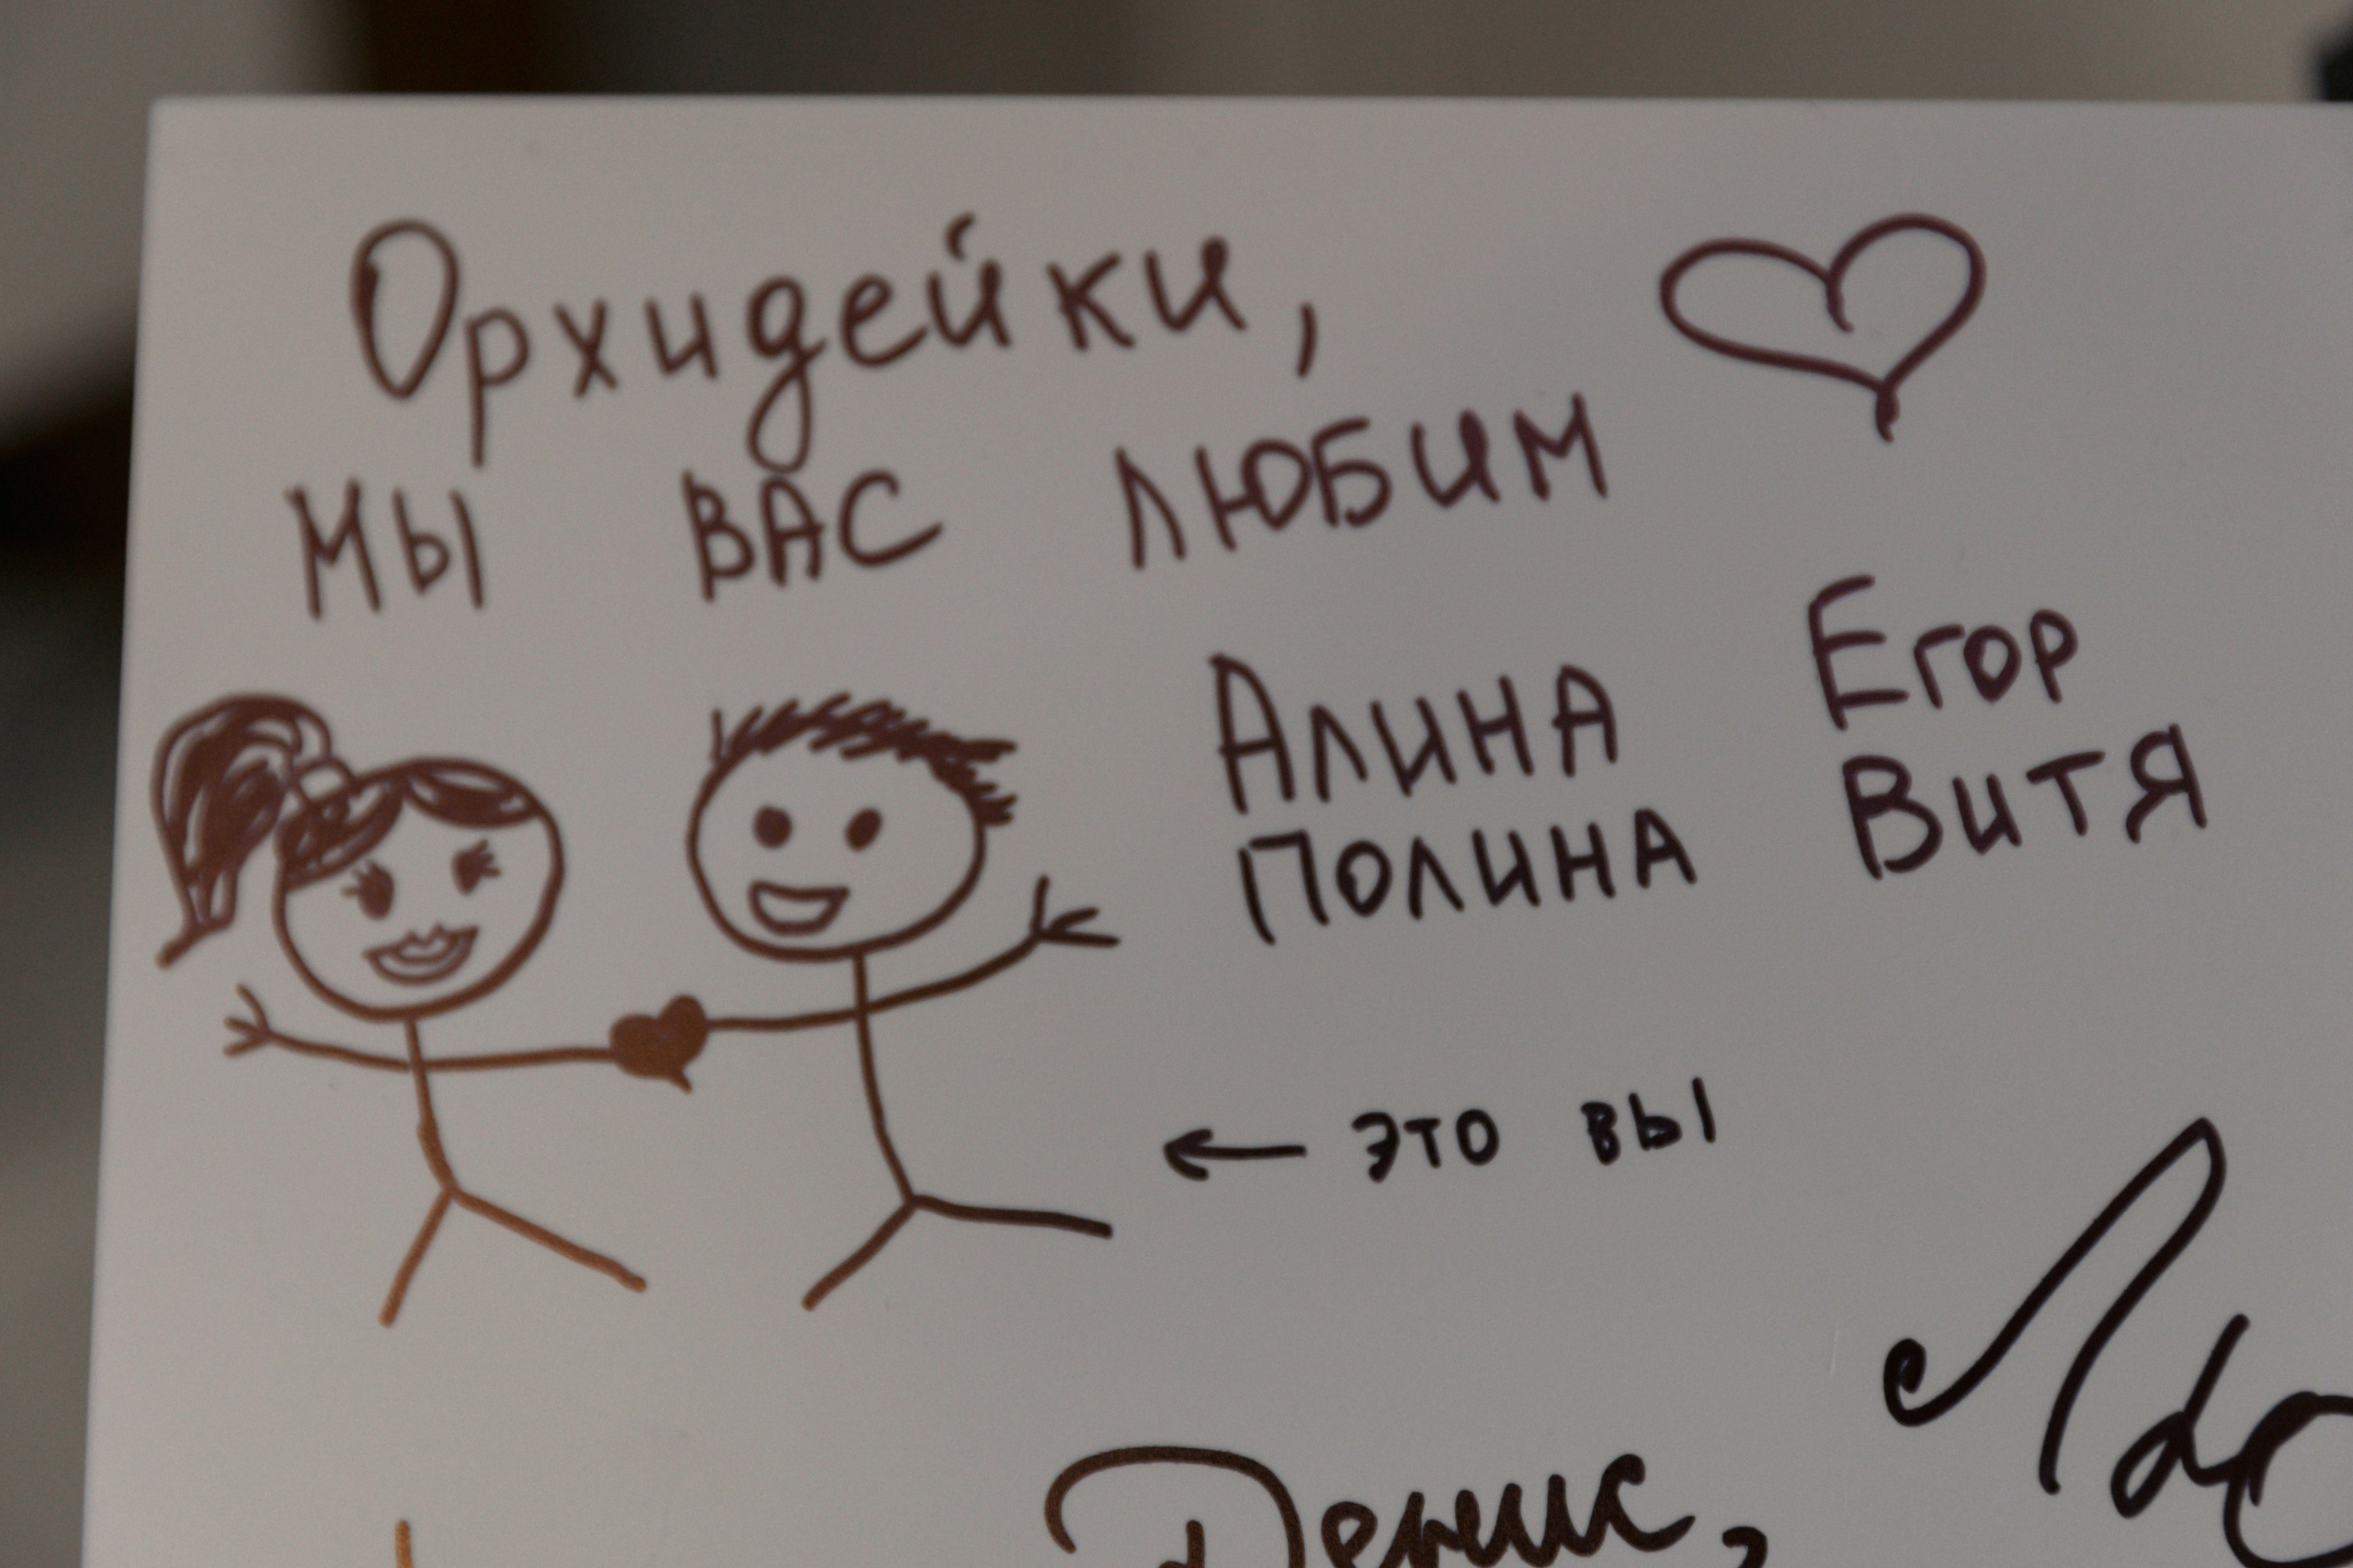 Орхидейки,
мы вас любим
Алина Егор
Полина Витя
← это вы
Денис,